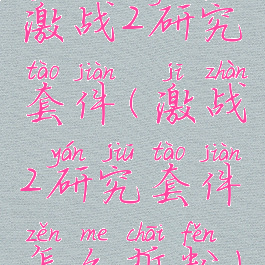 激战2研究
tào jiàn jī zhàn
套件(激战
yán jiū tào jiàn
2研究套件
zěn me chāi fěn
怎么拆粉)